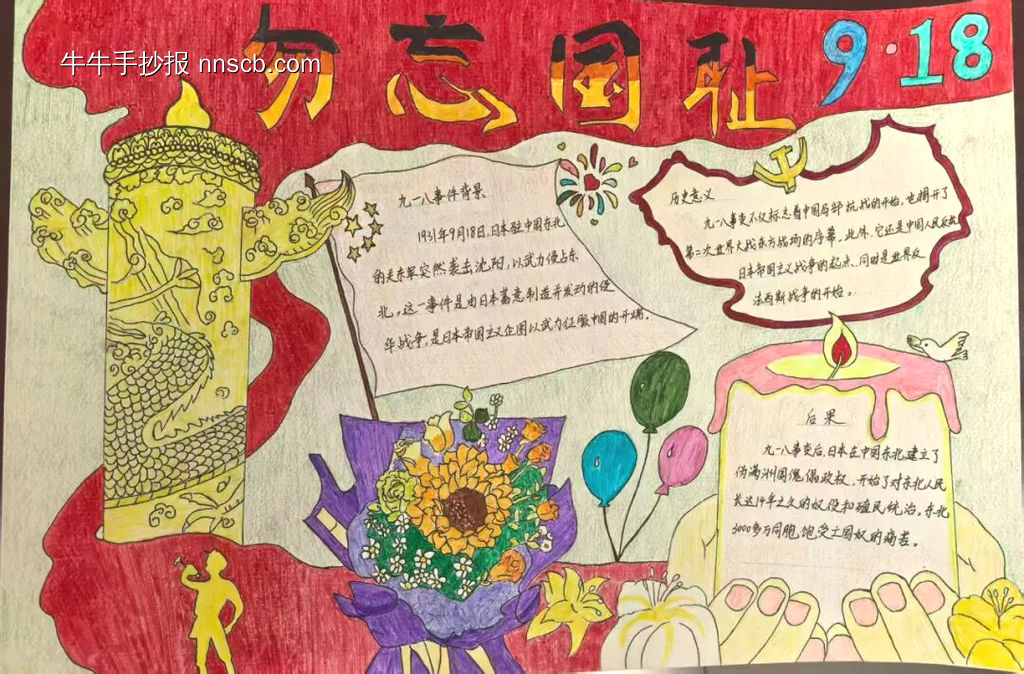 牛牛手抄报 nnscb.com
勿忘国耻
9·18
九一八事件背景
1931年9月18日,日本驻中国东北
的关东军突然袭击沈阳,以武力侵占东
北。这一事件是由日本蓄意制造并发动的侵
华战争,是日本帝国主义企图以武力征服中国的开端。
历史意义
九一八事变不仅标志着中国局部抗战的开始,也揭开了
第二次世界大战东方战场的序幕。此外,它还是中国人民反抗
日本帝国主义战争的起点、同时是世界反
法西斯战争的开始。
后果
九一八事变后,日本在中国东北建立了
伪满洲国傀儡政权,开始了对东北人民
长达14年之久的奴役和殖民统治,东北
3000多万同胞,饱受亡国奴的痛苦。